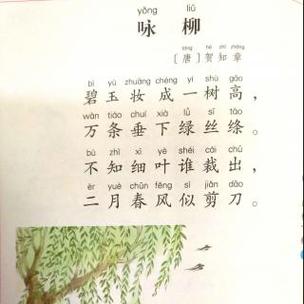 yǒng liǔ
咏柳
táng hè zhī zhāng
〔唐〕贺知章
bì yù zhuāng chéng yí shù gāo
碧玉妆成一树高，
wàn tiáo chuí xià lǜ sī tāo
万条垂下绿丝绦。
bù zhī xì yè shéi cái chū
不知细叶谁裁出，
èr yuè chūn fēng sì jiǎn dāo
二月春风似剪刀。